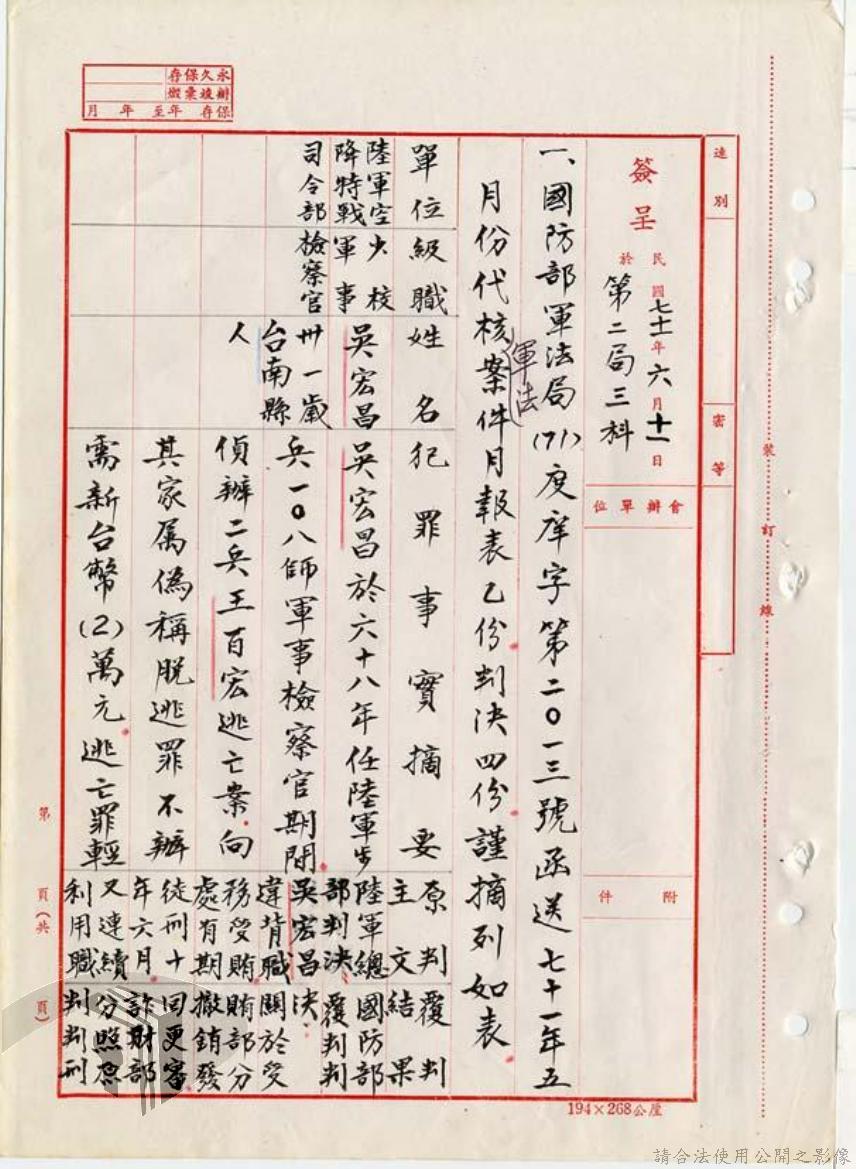 永久保存
辦竣彙燬
保存 年至 年 月
速別
密等
裝訂線
簽呈
民國七十一年六月十一日
於
第二局三科
會辦單位
附件
一、國防部軍法局(71)度庠字第二0一三號函送七十一年五
月份代核軍法案件月報表乙份判決四份謹摘列如表
單位級職
姓名
犯罪事實摘要
原判主文
覆判結果
陸軍空
降特戰
司令部
少校
軍事
檢察官
吳宏昌
卅一歲
台南縣
人
吳宏昌於六十八年任陸軍步
兵一0八師軍事檢察官期間
偵辦二兵王百宏逃亡案向
其家属偽稱脫逃罪不辦
需新台幣(2)萬元逃亡罪輕
陸軍總
部判決
吳宏昌
違背職
務受賄
處有期
徒刑十
年六月
又連續
利用職
國防部
覆判判
決:
關於受
賄部分
撤銷發
回更審
詐財部
分照原
判判刑
第 頁(共 頁)
194×268公厘
請合法使用公開之影像